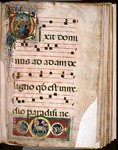 Dixit domi
nus ad adam de
ligno qd est in me
dio paradisi ne